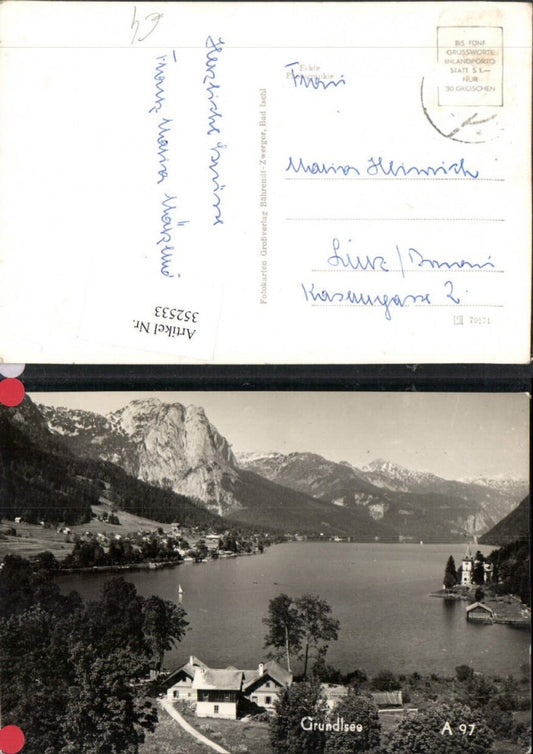 Echte
Photographie
BIS FÜNF
GRUSSWORTE
INLANDPORTO
STATT S 1.—
NUR
30 GROSCHEN
Herzliche Grüsse
Franz Maria
Frau
Maria Heinrich
Linz/
2
Fotokarten Großverlag Bährendt-Zwerger, Bad Ischl
70171
Artikel Nr.
352533
Grundlsee
A 97